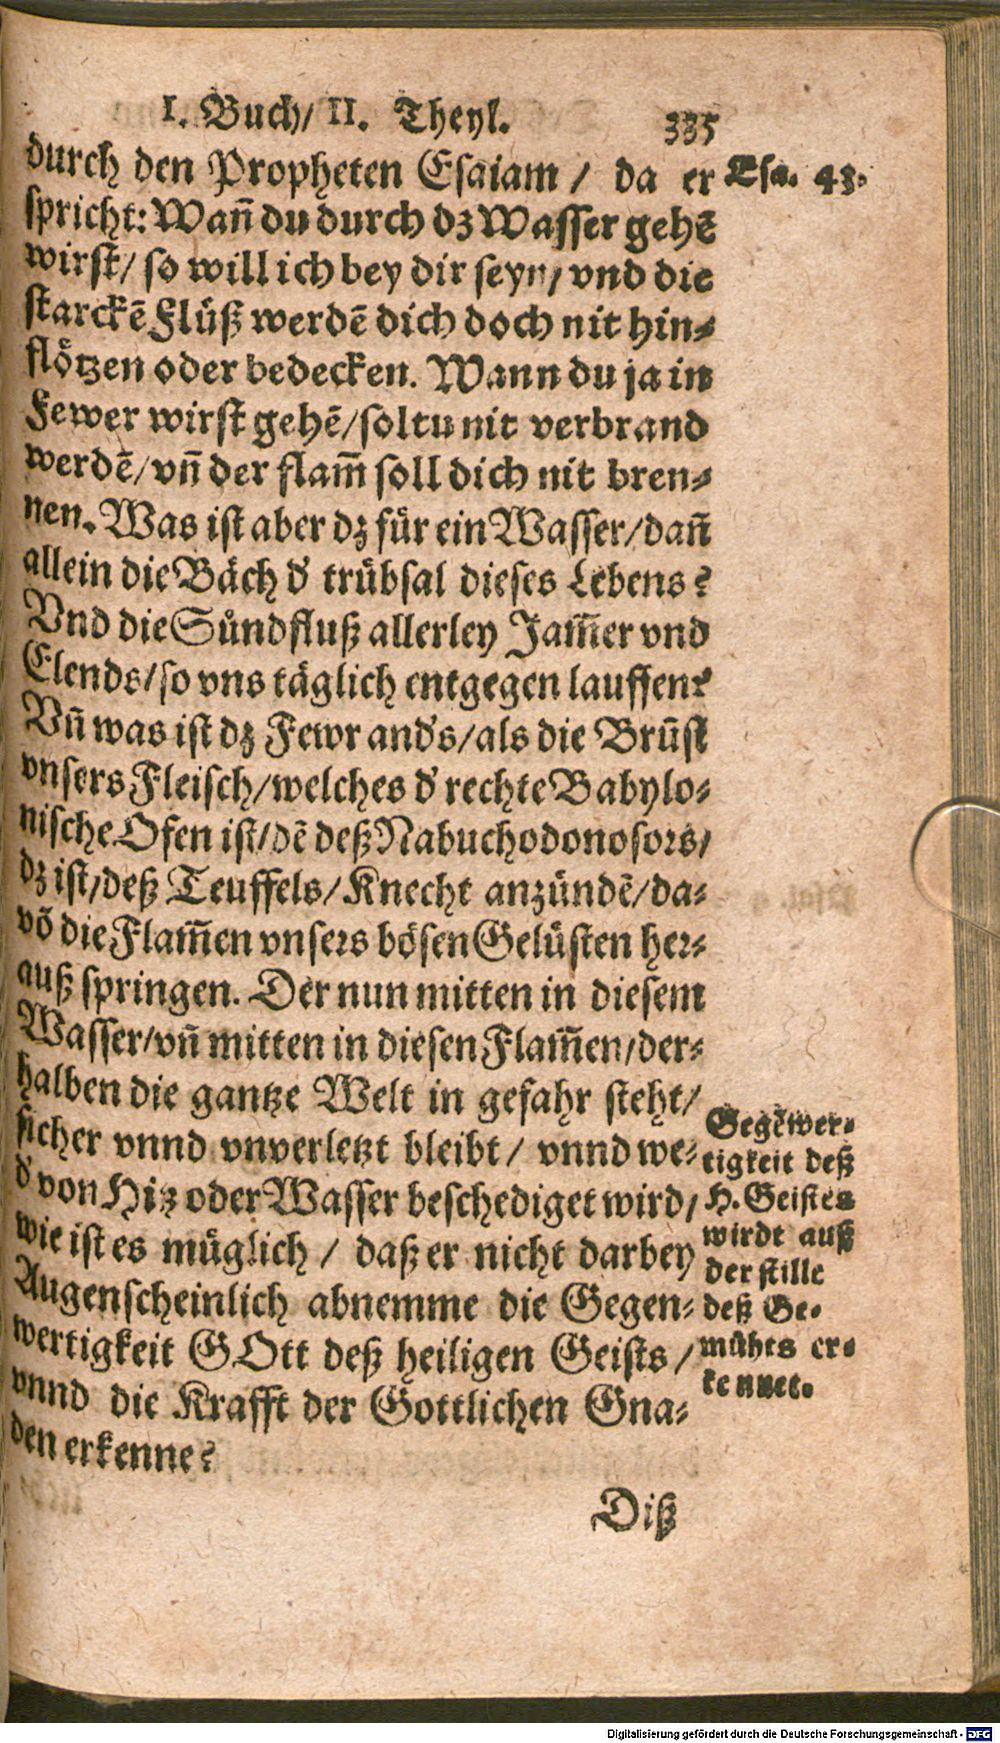 I. Buch/ II. Theyl. 335
durch den Propheten Esaiam / da er
Esa. 43.
spricht: Wañ du durch dz Wasser gehẽ
wirst/ so will ich bey dir seyn/ vnd die
starckẽ Flüß werdẽ dich doch nit hin-
flötzen oder bedecken. Wann du ja in
Fewer wirst gehẽ/ soltu nit verbrand
werdẽ/ vñ der flam̃ soll dich nit bren-
nen. Was ist aber dz für ein Wasser/ dañ
allein die Bäch d' trübsal dieses Lebens?
Vnd die Sündfluß allerley Jam̃er vnd
Elends/ so vns täglich entgegen lauffen?
Vñ was ist dz Fewr and's/ als die Brũst
vnsers Fleisch/ welches d' rechte Babylo-
nische Ofen ist/ dẽ deß Nabuchodonosors/
dz ist/ deß Teuffels/ Knecht anzündẽ/ da-
võ die Flam̃en vnsers bösen Gelüsten her-
auß springen. Der nun mitten in diesem
Wasser/ vñ mitten in diesen Flam̃en/ der-
halben die gantze Welt in gefahr steht/
sicher vnnd vnverletzt bleibt / vnnd we-
d' von Hitz oder Wasser beschediget wird/
wie ist es müglich / daß er nicht darbey
Augenscheinlich abnemme die Gegen-
wertigkeit GOtt deß heiligen Geists /
vnnd die Krafft der Gottlichen Gna-
den erkenne?
Gegẽwer-
tigkeit deß
H. Geistes
wirdt auß
der stille
deß Ge-
mühts er-
kennet.
Diß
Digitalisierung gefördert durch die Deutsche Forschungsgemeinschaft - DFG